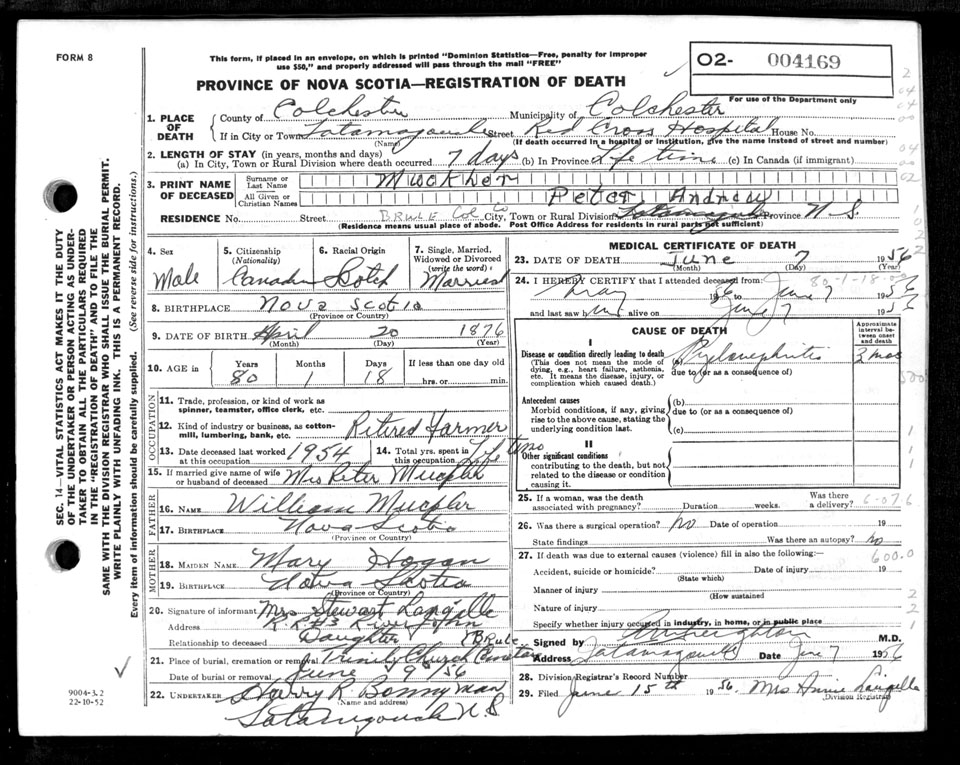 FORM 8
This form, if placed in an envelope, on which is printed "Dominion Statistics—Free, penalty for improper
use $50," and properly addressed will pass through the mail "FREE"
O2- 004169
PROVINCE OF NOVA SCOTIA—REGISTRATION OF DEATH
For use of the Department only
1. PLACE OF DEATH
County of Colchester Municipality of Colchester
If in City or Town Tatamagouche Street Red Cross Hospital House No.
(Name) (If death occurred in a hospital or institution, give the name instead of street and number)
2. LENGTH OF STAY (in years, months and days)
(a) In City, Town or Rural Division where death occurred 7 days (b) In Province Life time (c) In Canada (if immigrant)
3. PRINT NAME OF DECEASED
Surname or Last Name
All Given or Christian Names Peter Andrew
RESIDENCE No. Street BRULE Col Co City, Town or Rural Division Tatamagouche Province N S.
(Residence means usual place of abode. Post Office Address for residents in rural parts not sufficient)
4. Sex Male
5. Citizenship (Nationality)
6. Racial Origin Scotch
7. Single, Married, Widowed or Divorced (write the word) Married
8. BIRTHPLACE Nova Scotia
(Province or Country)
9. DATE OF BIRTH April 20 1876
(Month) (Day) (Year)
10. AGE in Years 80 Months 1 Days 18 If less than one day old hrs. or min.
OCCUPATION
11. Trade, profession, or kind of work as spinner, teamster, office clerk, etc.
12. Kind of industry or business, as cotton-mill, lumbering, bank, etc. Retired Farmer
13. Date deceased last worked at this occupation 1954
14. Total yrs. spent in this occupation Life time
15. If married give name of wife or husband of deceased Mrs Peter
FATHER
16. NAME William
17. BIRTHPLACE Nova Scotia
(Province or Country)
MOTHER
18. MAIDEN NAME Mary Hogan
19. BIRTHPLACE Nova Scotia
(Province or Country)
20. Signature of informant Mrs Stewart Langille
Address RR #3 River John
Relationship to deceased Daughter (Brule
21. Place of burial, cremation or removal Trinity Church
Date of burial or removal June 9 /56
22. UNDERTAKER Harry R. Bonnyman
(Name and address)
Tatamagouche N.S
MEDICAL CERTIFICATE OF DEATH
23. DATE OF DEATH June 7 1956
(Month) (Day) (Year)
24. I HEREBY CERTIFY that I attended deceased from:
May 1956 to June 7 1956
and last saw him alive on June 7 1956
CAUSE OF DEATH
Approximate interval between onset and death
I
Disease or condition directly leading to death (a) Pyelonephritis 3 mos
(This does not mean the mode of dying, e.g., heart failure, asthenia, etc. It means the disease, injury, or complication which caused death.)
due to (or as a consequence of)
Antecedent causes
Morbid conditions, if any, giving rise to the above cause, stating the underlying condition last.
(b)
due to (or as a consequence of)
(c)
II
Other significant conditions
contributing to the death, but not related to the disease or condition causing it.
25. If a woman, was the death associated with pregnancy? Duration weeks. Was there a delivery?
26. Was there a surgical operation? No Date of operation 19
State findings Was there an autopsy? no
27. If death was due to external causes (violence) fill in also the following:— 600.0
Accident, suicide or homicide? Date of injury 19
(State which)
Manner of injury
(How sustained
Nature of injury
Specify whether injury occurred in industry, in home, or in public place
Signed by M.D.
Address Tatamagouche Date June 7 1956
28. Division Registrar's Record Number
29. Filed June 15th 1956. Mrs Annie Langille
Division Registrar
SEC. 14—VITAL STATISTICS ACT MAKES IT THE DUTY
OF THE UNDERTAKER OR PERSON ACTING AS UNDER-
TAKER TO OBTAIN ALL THE PARTICULARS REQUIRED
IN THE "REGISTRATION OF DEATH" AND TO FILE THE
SAME WITH THE DIVISION REGISTRAR WHO SHALL ISSUE THE BURIAL PERMIT.
WRITE PLAINLY WITH UNFADING INK. THIS IS A PERMANENT RECORD.
Every item of information should be carefully supplied. (See reverse side for instructions.)
9004-3.2
22-10-52